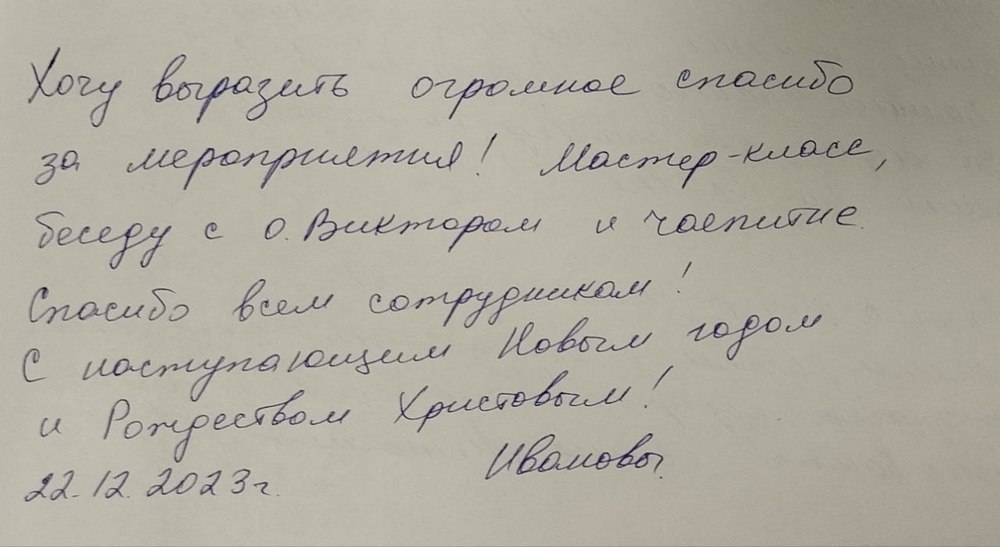 Хочу выразить огромное спасибо
за мероприятия! Мастер-класс,
беседу с о. Виктором и чаепитие.
Спасибо всем сотрудникам!
С наступающим Новым годом
и Рождеством Христовым!
Ивановы.
22.12.2023г.